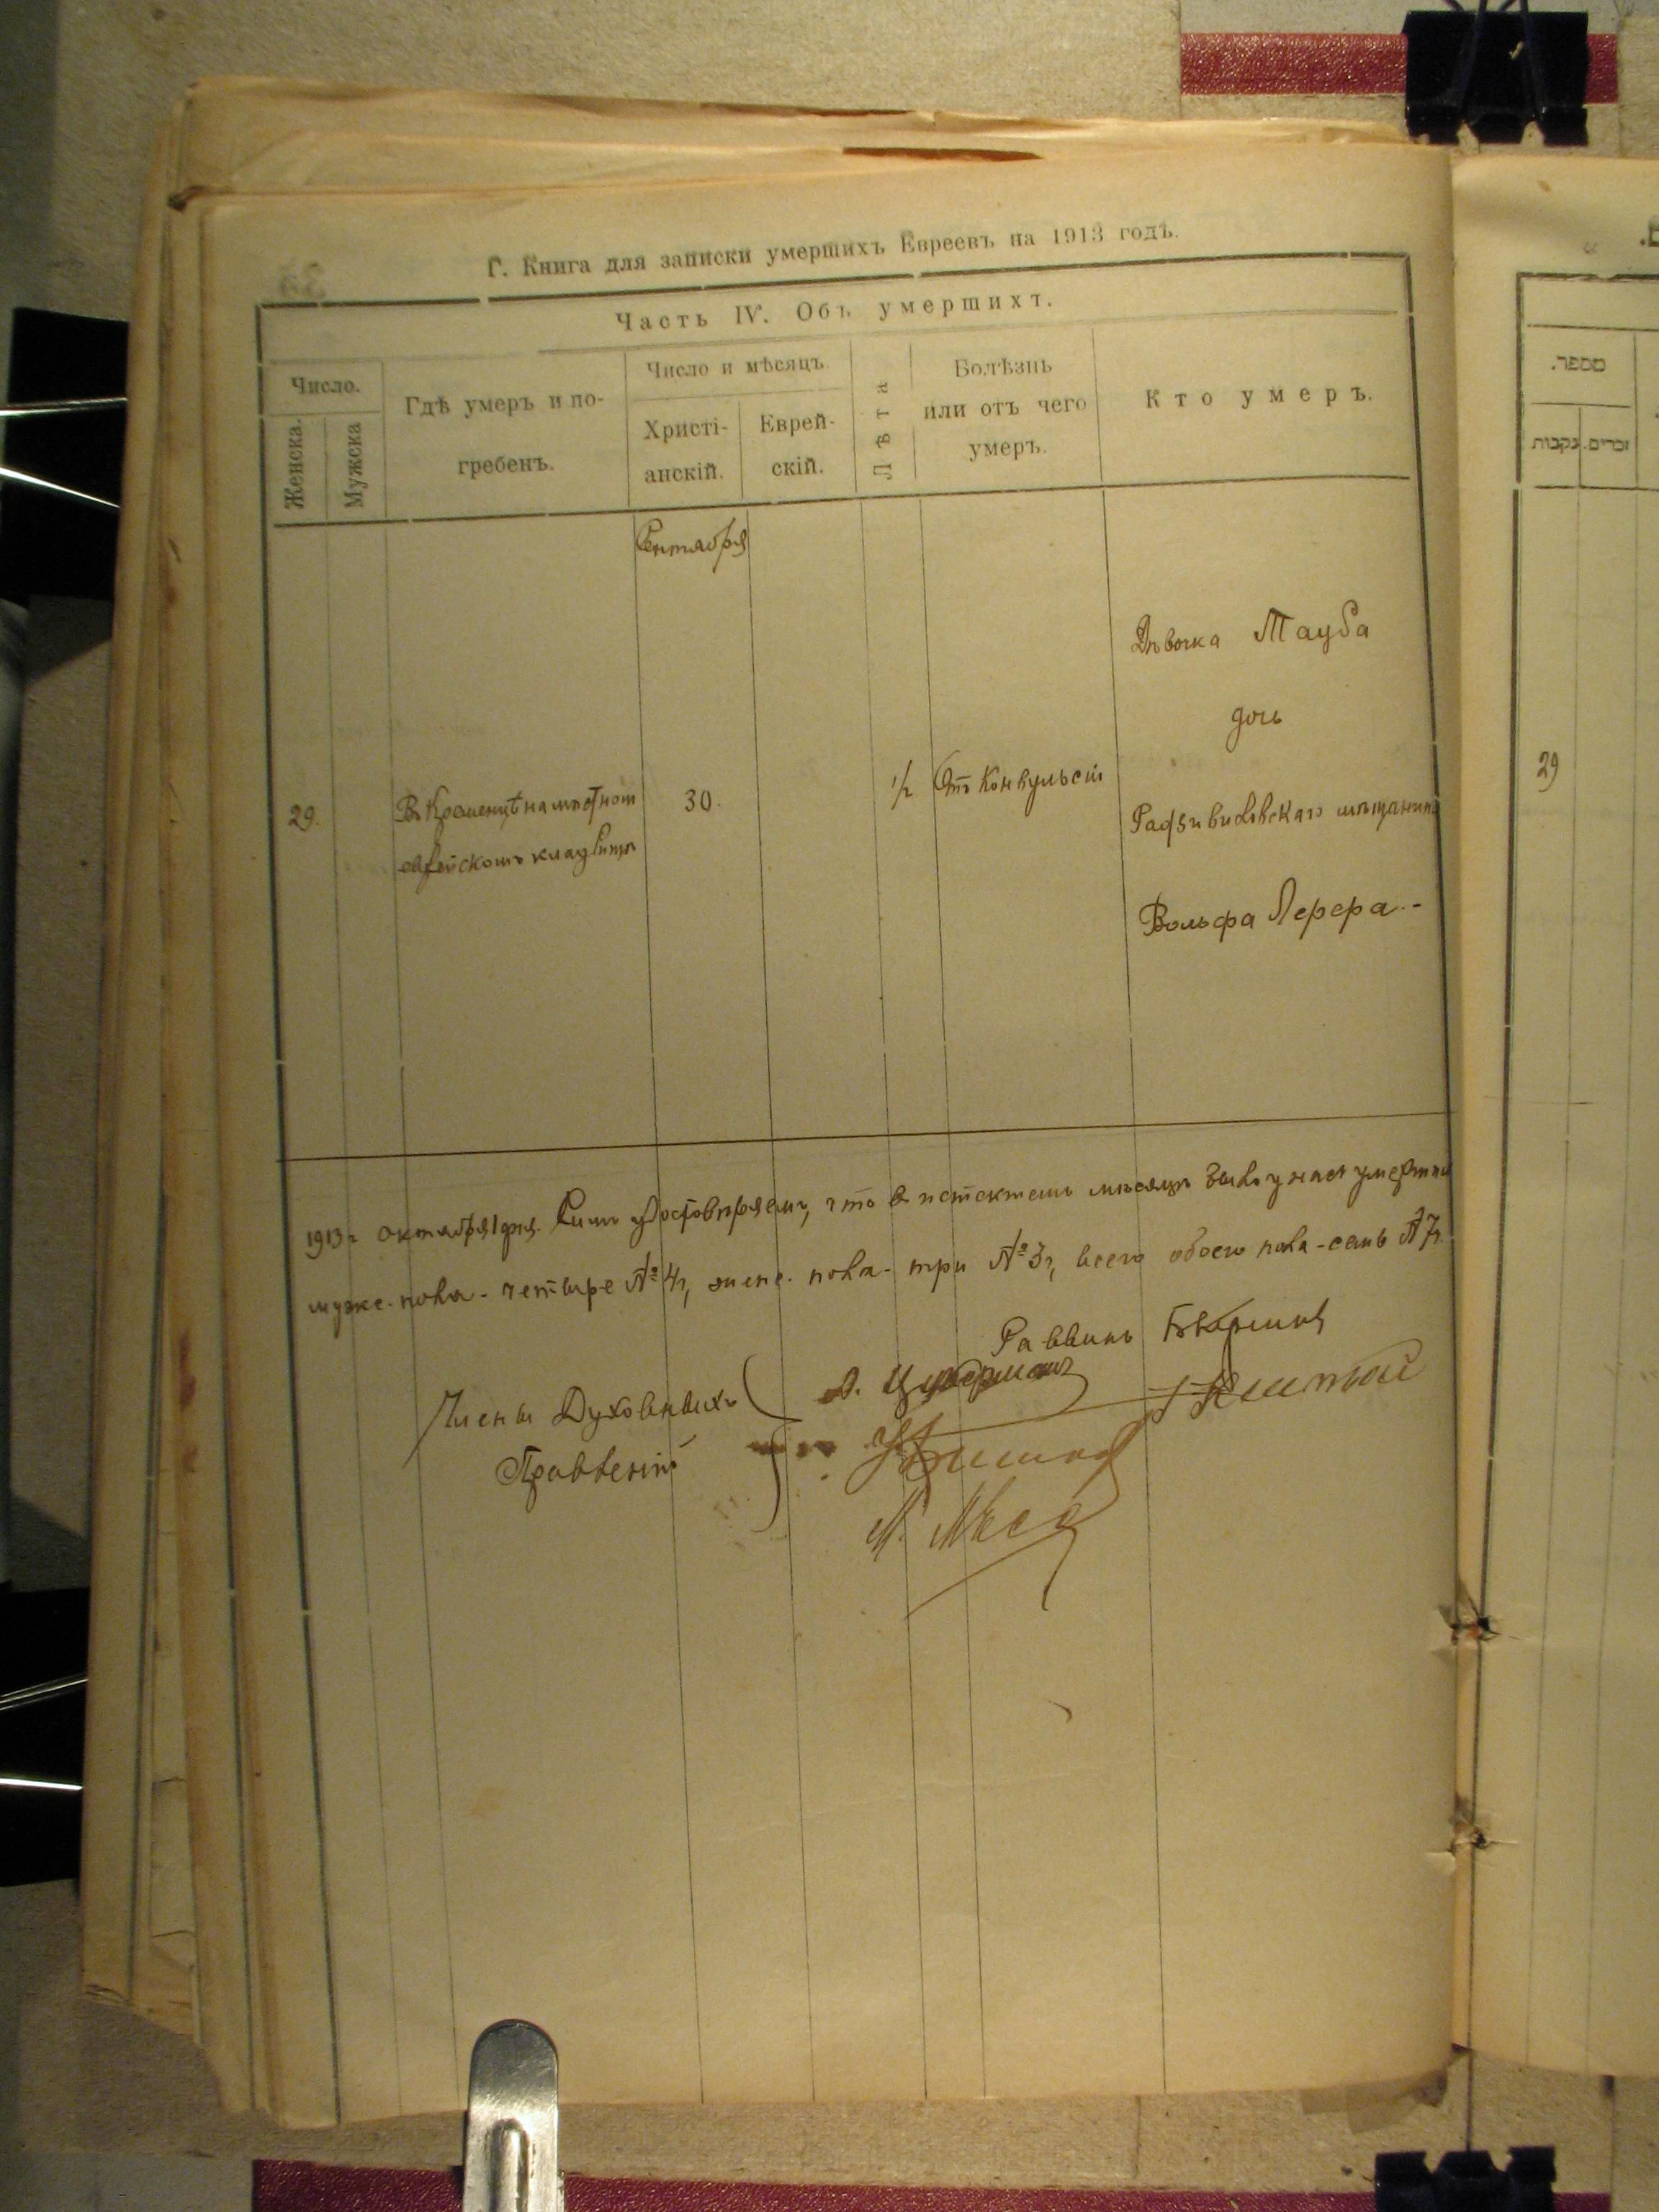 Г. Книга для записки умершихъ Евреевъ на 1913 годъ.
Часть IV. Объ умершихъ.
Число.
Женска.
Мужска
Гдѣ умеръ и по-
гребенъ.
Число и мѣсяцъ.
Христі-
анскій.
Еврей-
скій.
Лѣта
Болѣзнь
или отъ чего
умеръ.
Кто умеръ.
Сентября
29.
Въ Кременцѣ на мѣстномъ
еврейскомъ кладбищѣ
30.
1/2
Отъ Конвульсій
Дѣвочка Тауба
дочь
Радзивиловскаго мѣщанина
Вольфа Лерера.-
1913 г. октября 1 дня. Симъ удостовѣряемъ, что в истекшемъ мѣсяцѣ было у насъ умершихъ
мужс. пола - четыре № 4, женс. пола - три № 3, всего обоего пола - семь № 7.
Раввинъ
Члены Духовныхъ
Правленій
מספר.
נקבות
זכרים.
29